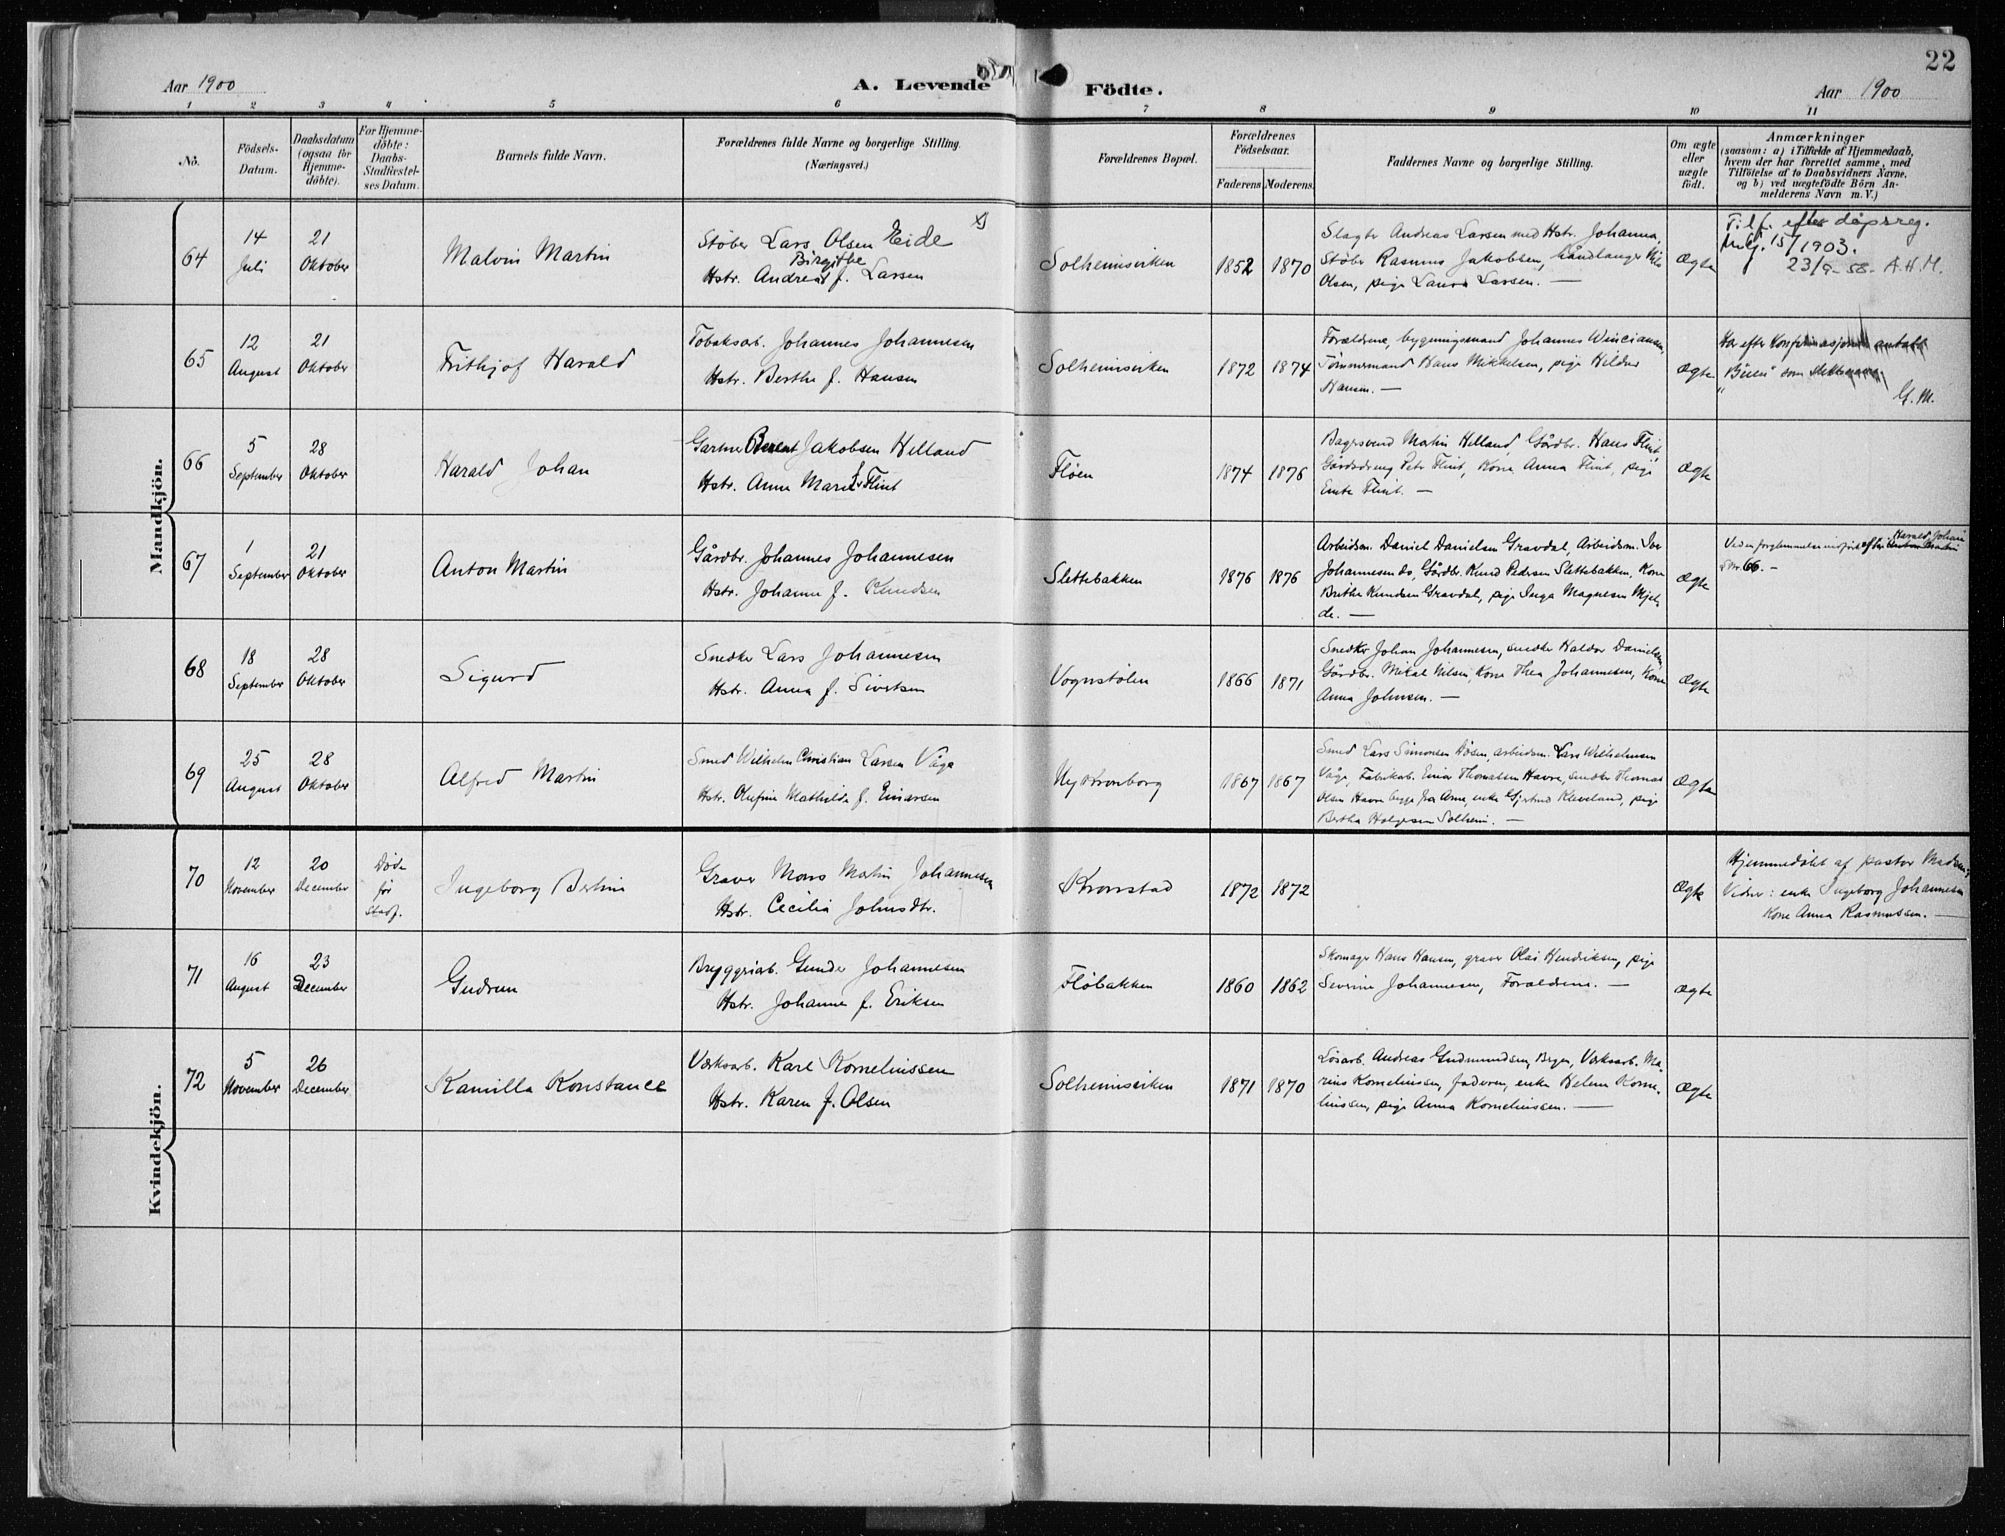 22
Aar 1900
A. Levende Födte.
Aar 1900
1 2 3 4 5 6 7 8 9 10 11
No.
Födsels-
Datum.
Daabsdatum
(ogsaa for
Hjemme-
döbte).
For Hjemme-
döbte:
Daabs-
Stadfæstel-
ses Datum.
Barnets fulde Navn.
Forældrenes fulde Navne og borgerlige Stilling.
(Næringsvei.)
Forældrenes Bopæl.
Forældrenes
Födselsaar.
Faderens. Moderens.
Faddernes Navne og borgerlige Stilling.
Om ægte
eller
uægte
födt.
Anmærkninger
(saasom: a) i Tilfælde af Hjemmedaab,
hvem der har forrettet samme, med
Tilföielse af to Daabsvidners Navne,
og b) ved uægtefödte Börn An-
melderens Navn m. V.)
Mandkjön.
64
14
Juli
21
Oktober
Malvin Martin
Støber Lars Olsen Eide x)
Birgithe
Hstr. Andrea f. Larsen
Solheimsviken
1852 1870
Slagter Andreas Larsen med Hstr. Johanna,
Støber Rasmus Jakobsen, håndlanger Nils
Olsen, pige Laura Larsen. —
Ægte
Tilf. efter dåpsreg.
1903.
23/9-58. A.H.M.
65
12
August
21
Oktober
Frithjof Harald
Tobaksarb. Johannes Johannesen
Hstr. Berthe f. Hansen
Solheimsviken
1872 1874
Forældrene, bygningsmand Johannes
Tømmermand Hans Mikkelsen, pige Hildur
Hansen. —
Ægte
Har efter Konfirmasjonen antatt
som
G. M.
66
5
September
28
Oktober
Harald Johan
Gartner Berent Jakobsen Helland
Hstr. Anna Marie f. Flint
Fløen
1874 1876
Bagersvend Martin Helland, Gårdbr. Hans Flint,
Gårdsdreng Petr Flint, Kone Anna Flint, pige
Flint. —
Ægte
67
1
September
21
Oktober
Anton Martin
Gårdbr. Johannes Johannesen
Hstr. Johanne f. Knudsen
Slettebakken
1876 1876
Arbeidsm. Daniel Danielsen Gravdal, Arbeidsm. Iver
Johannesen do, Gårdbr. Knud Pedersen Slettebakken, Kone
Berthe Knudsen Gravdal, pige Inga Magnesen Mjel-
de. —
Ægte
Harald Johan
Ved en forglemmelse indført efter Anton Martin
Nr. 66. —
68
18
September
28
Oktober
Sigurd
Snedker Lars Johannesen
Hstr. Anna f. Sivertsen
Vognstølen
1866 1871
Snedker Johan Johannesen, snedker Haldor Danielsen,
Gårdbr. Mikal Nilsen, Kone Thea Johannesen, Kone
Anna Johnsen. —
Ægte
69
25
August
28
Oktober
Alfred Martin
Smed Wilhelm Christian Larsen Våge
Hstr. Olufine Mathilde f. Einarsen
Ny Kronborg
1867 1867
Smed Lars Simonsen Døsen, arbeidsm. Lars Wilhelmsen
Våge, Fabrikarb. Einar Thomassen Havre, snedker Thomas
Olsen Havre begge fra Arne, enke Gjertrud Kleveland, pige
Bertha Helgesen Solheim. —
Ægte
Kvindekjön.
70
12
November
20
December
Døde
før
Stadf.
Ingeborg Bertine
Graver Mons Martin Johannesen
Hstr. Cecilia Johnsdtr.
Kronstad
1872 1872
Ægte
Hjemmedøbt af pastor Madsen;
Vidner: enke Ingeborg Johannesen
Kone Anna Rasmussen. —
71
16
August
23
December
Gudrun
Bryggeriarb. Gunder Johannesen
Hstr. Johanne f. Eriksen
Fløbakken
1860 1862
Skomager Hans Hansen, graver Olai Hendriksen, pige
Severine Johannesen, Forældrene. —
Ægte
72
5
November
26
December
Kamilla Konstance
Værksarb. Karl Korneliussen
Hstr. Karen f. Olsen
Solheimsviken
1871 1870
Løsarb. Andreas Gudmundsen, Bergen, Værksarb. Ma-
rius Korneliussen, faderen, enke Helene Korne-
liussen, pige Anna Korneliussen. —
Ægte